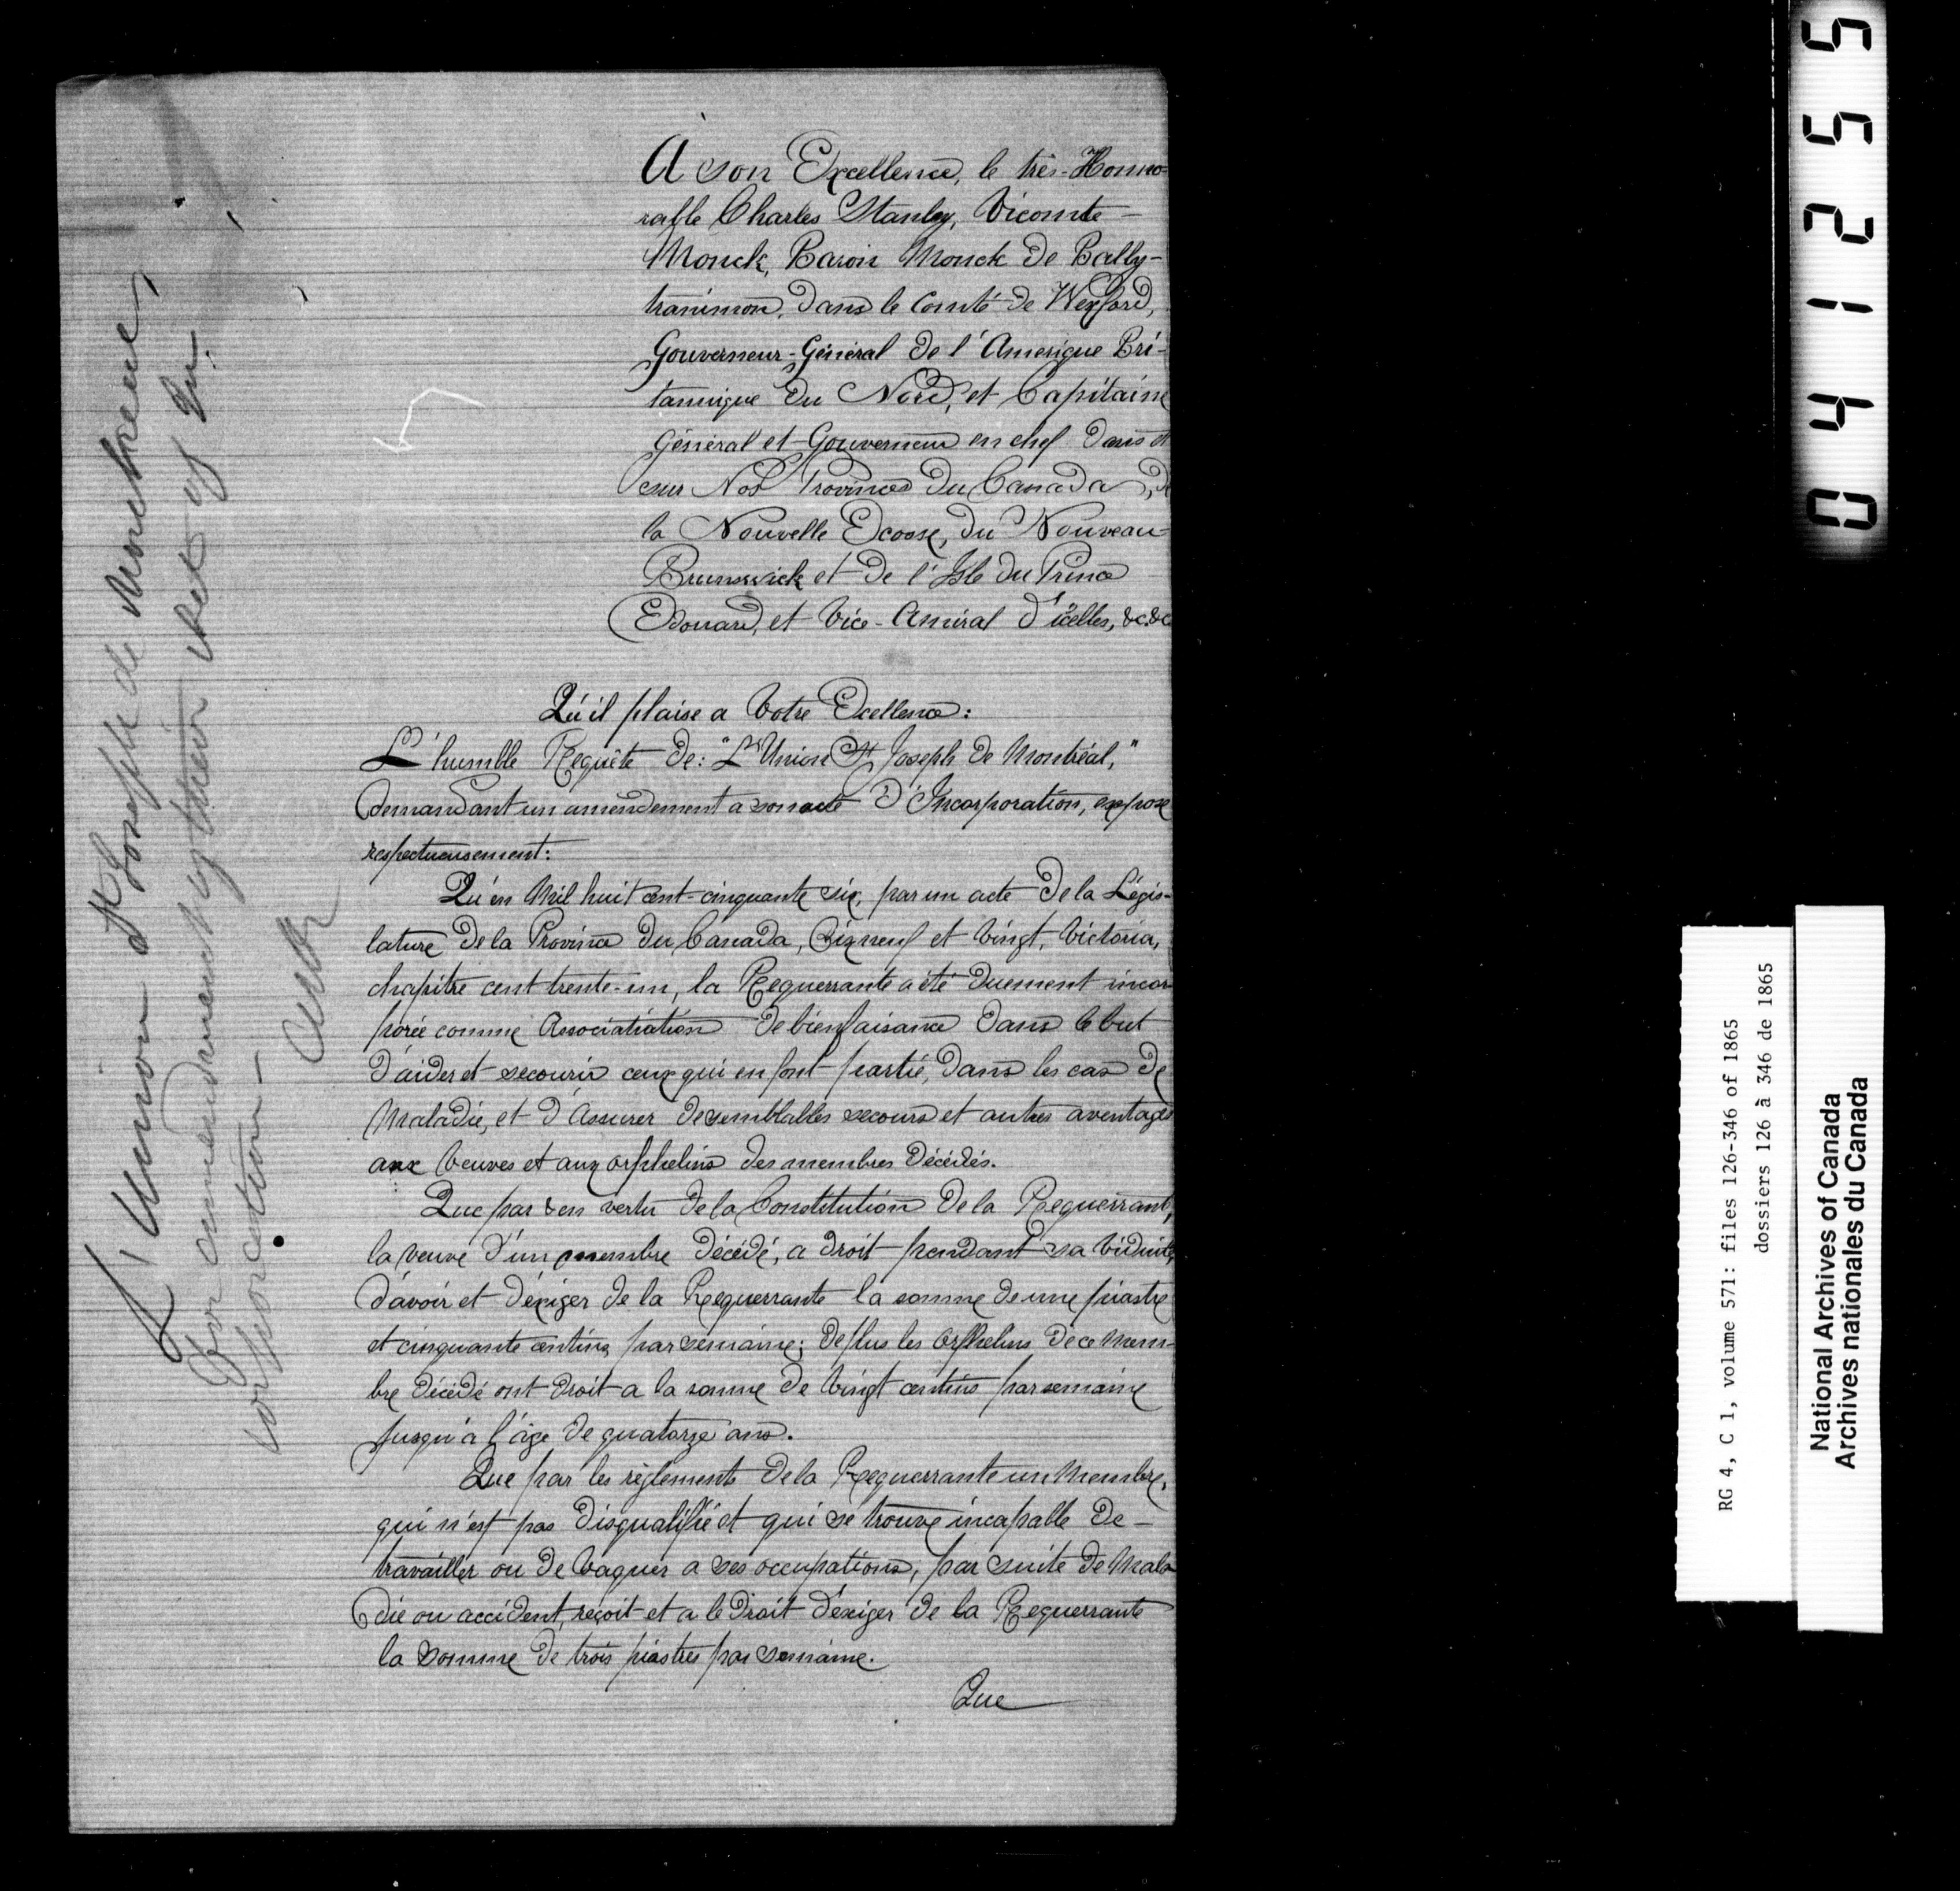 A Son Excellence, le très-Honno-
rable Charles Stanley, Vicomte
Monck, Baron Monck de Bally-
trammon, dans le Comté de Wexford,
Gouverneur-Général de l'Amerique Bri-
tannique du Nord, et Capitaine
Général et Gouverneur en chef dans et
sur Nos Provinces du Canada, de
la Nouvelle Ecosse, du Nouveau
Brunswick et de l'Isle du Prince
Edouard, et Vice-Amiral d'icelles, &c. &c
Qu'il plaise a Votre Excellence:
L'humble Requête de: "L'Union St Joseph de Montréal,"
demandant un amendement a son acte d'Incorporation, expose
respectueusement:
Qu'en Mil huit cent-cinquante six, par un acte de la Légis-
lature de la Province du Canada, dixneuf et vingt, Victoria,
chapitre cent trente-un, la Requerrante a été duement incor-
porée comme Associatiation de bienfaisance dans le but
d'aider et secourir ceux qui en font partie, dans les cas de
Maladie, et d'Assurer de semblables secours et autres aventages
aux Veuves et aux orphelins des membres décédés.
Que par & en vertu de la Constitution de la Requerrante,
la veuve d'un membre décédé, a droit pendant sa viduité,
d'avoir et d'éxiger de la Requerrante la somme de une piastre
et cinquante centins par semaine; de plus les Orphelins de ce Mem-
bre décédé ont droit a la somme de vingt centins par semaine
jusqu'à l'âge de quatorze ans.
Que par les règlements de la Requerrante un Membre,
qui n'est pas disqualifié et qui se trouve incapable de
travailler ou de vaquer a ses occupations, par suite de Mala
die ou accident, reçoit et a le droit d'éxiger de la Requerrante
la somme de trois piastres par semaine.
Que
L'Union St Joseph de Montreal,
For amendment of their Act of In-
corporation -
041255
RG 4, C 1, volume 571: files 126-346 of 1865
dossiers 126 à 346 de 1865
National Archives of Canada
Archives nationales du Canada